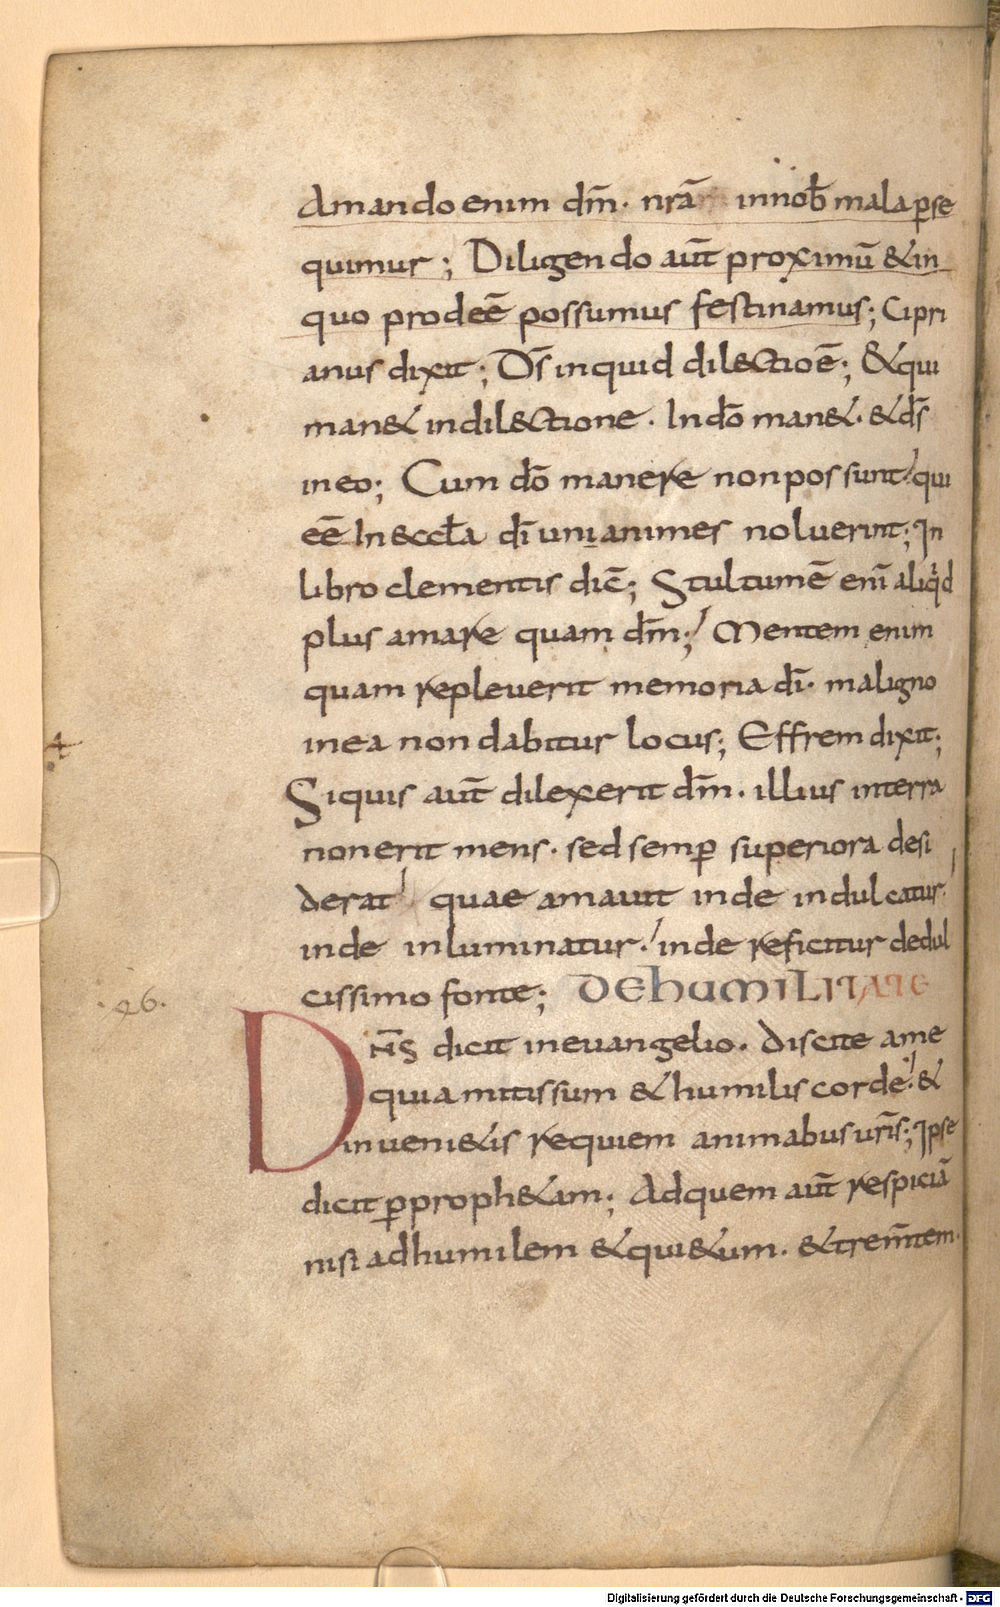 Amando enim dm̄. nrā innob̄ mala ꝑse
quimur; Diligendo aut̄ proximū & in
quo prodeē possumus festinamus; Cipri
anus dixit; Ds̄ inquid dilectioē; & qui
man& in dilectione. In dō man&. & ds̄
in eo; Cum dō manere non possunt qui
eē In eccl̄a dī unianimes noluerint; In
libro clementis dic̄; Stultumē enī aliqd
plus amare quam dm̄; Mentem enim
quam repleverit memoria dī. maligno
in ea non dabitur locus; Effrem dixit;
Siquis aut̄ dilexerit dm̄. illius interra
non erit mens. sed semꝑ superiora desi
derat quae amavit inde indulcatur.
inde inluminatur. inde reficitur dedul
cissimo fonte; DE hUMILITATE
26.
DNS̄ dicit in evangelio. Discite ame
quia mitis sum & humilis corde. &
inveni&is requiem animabus vr̄is; Ipse
dicit ꝑ proph&am; Ad quem aut̄ respiciā
nisi ad humilem & qui&um. & trem̄tem.
Digitalisierung gefördert durch die Deutsche Forschungsgemeinschaft - DFG